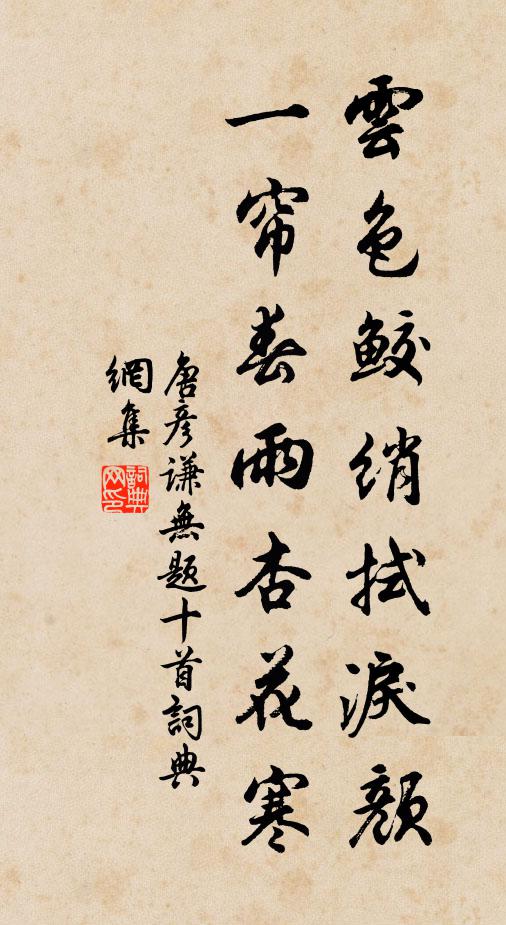 雲色鮫綃拭淚顏
一帘春雨杏花寒
唐彥謙無題十首詞典
網集
詞典
网印